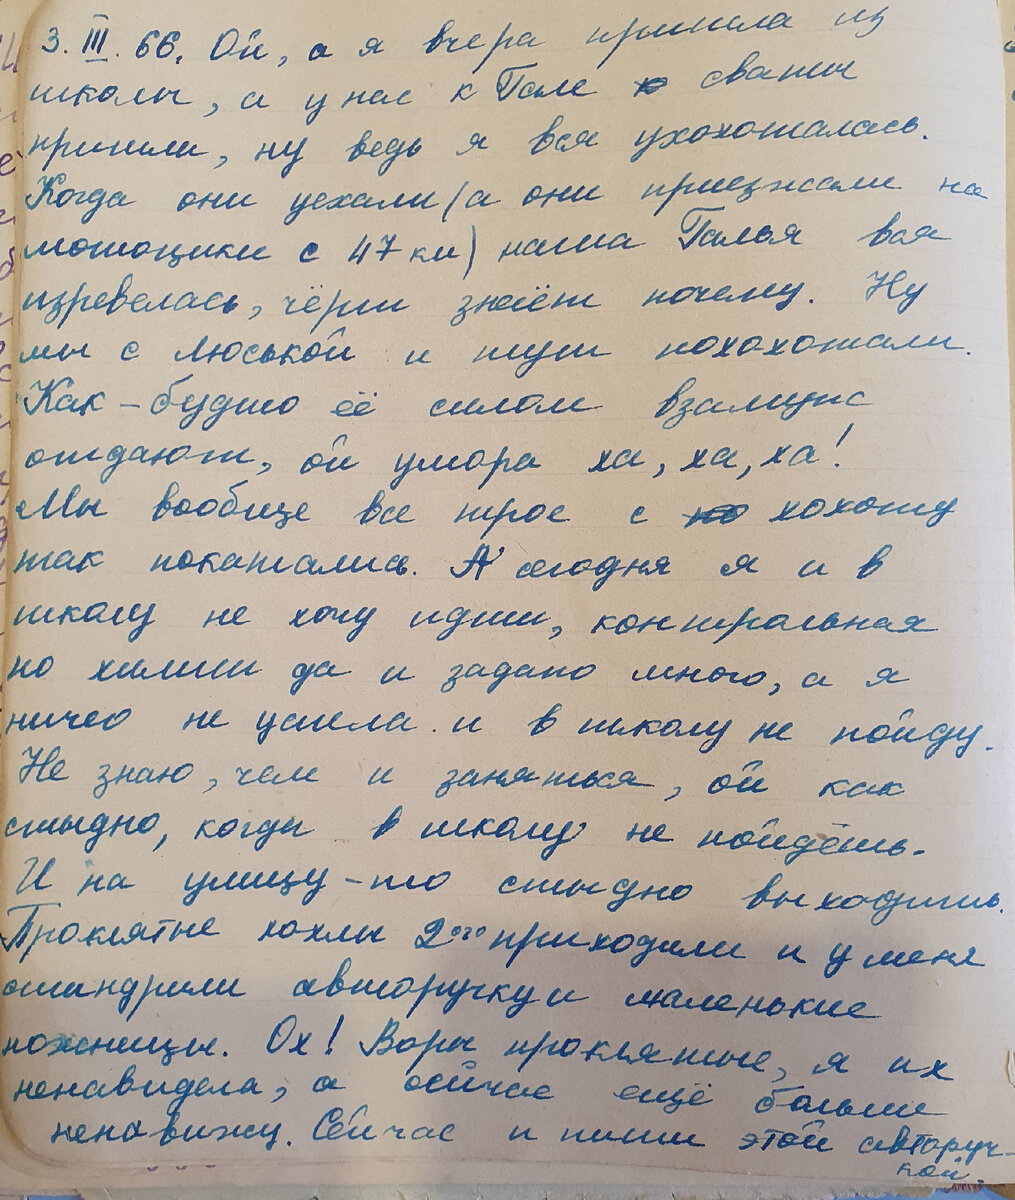 3. III. 66. Ой, а я вчера пришла из
школы, а у нас к Гале сваты
пришли, ну ведь я вся ухохоталась.
Когда они уехали (а они приезжали на
мотоцикле с 47 км) наша Галья вся
изревелась, чёрт знает почему. Ну
мы с Люськой и тут похохотали.
Как-будто её силом взамуж
отдают, ой умора ха, ха, ха!
Мы вообще все трое с хохоту
так покатались. А сегодня я и в
школу не хочу идти, контрольная
по химии да и задано много, а я
ничео не успела и в школу не пойду.
Не знаю, чем и заняться, ой как
стыдно, когда в школу не пойдёшь.
И на улицу-то стыдно выходить.
Проклятые хохлы 2ого приходили и у меня
стандрили авторучку и маленькие
ножницы. Ох! Воры проклятые, я их
ненавидела, а сейчас ещё больше
ненавижу. Сейчас и пишу этой авторуч-
кой.